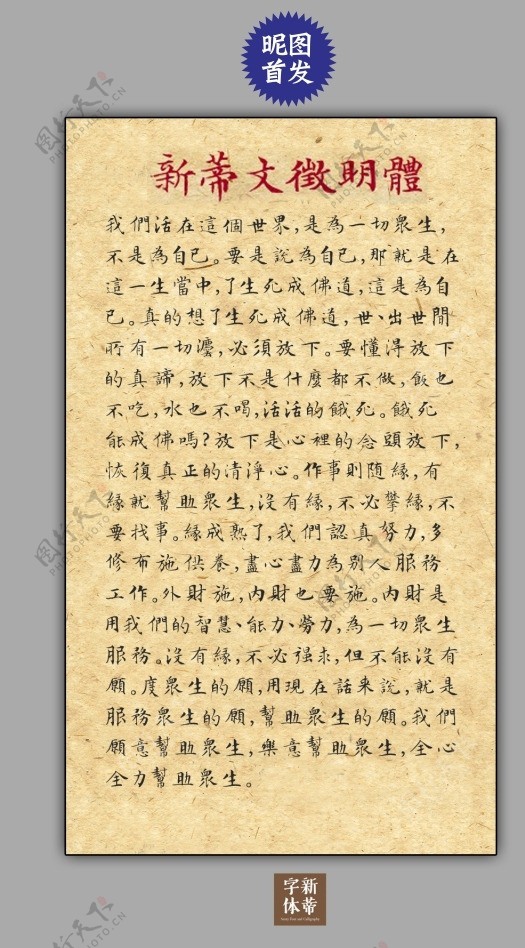 昵图
首发
新蒂文徵明體
我們活在這個世界,是為一切眾生,
不是為自己。要是說為自己,那就是在
這一生當中,了生死成佛道,這是為自
己。真的想了生死成佛道,世、出世間
所有一切灋,必須放下。要懂得放下
的真諦,放下不是什麼都不做,飯也
不吃,水也不喝,活活的餓死。餓死
能成佛嗎?放下是心裡的念頭放下,
恢復真正的清淨心。作事則随緣,有
緣就幫助眾生,沒有緣,不必攀緣,不
要找事。緣成熟了,我們認真努力,多
修布施供養,盡心盡力為別人服務
工作。外財施,內財也要施。內財是
用我們的智慧、能力、勞力,為一切眾生
服務。沒有緣,不必强求,但不能沒有
願。度眾生的願,用現在話来說,就是
服務眾生的願,幫助眾生的願。我們
願意幫助眾生,樂意幫助眾生,全心
全力幫助眾生。
新蒂
字体
图行天下
PHOTOPHOTO.CN